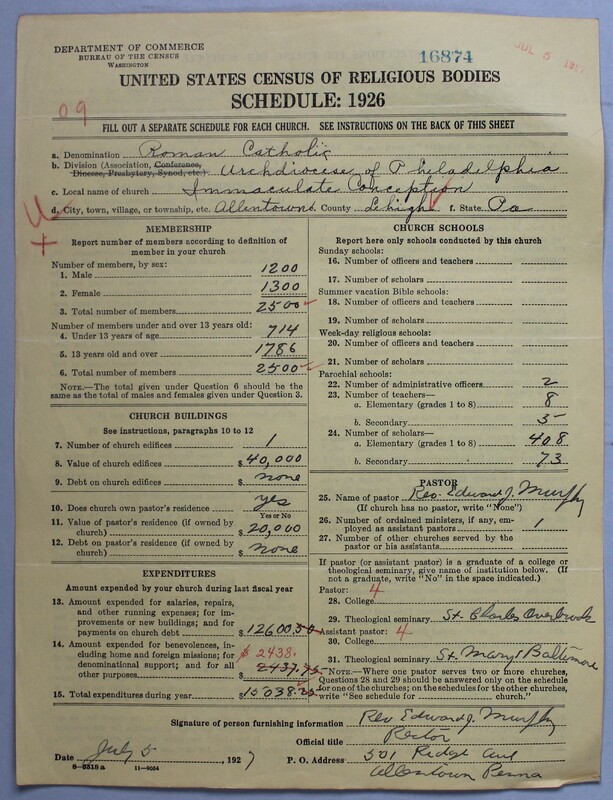 DEPARTMENT OF COMMERCE
BUREAU OF THE CENSUS
WASHINGTON
16874
JUL 5
UNITED STATES CENSUS OF RELIGIOUS BODIES
SCHEDULE: 1926
09
FILL OUT A SEPARATE SCHEDULE FOR EACH CHURCH. SEE INSTRUCTIONS ON THE BACK OF THIS SHEET
a. Denomination Roman Catholic
b. Division (Association, Conference, Diocese, Presbytery, Synod, etc.) Archdiocese of Philadelphia
c. Local name of church Immaculate Conception
d. City, town, village, or township, etc. Allentown e. County Lehigh f. State Pa
MEMBERSHIP
Report number of members according to definition of
member in your church
Number of members, by sex:
1. Male 1200
2. Female 1300
3. Total number of members 2500
Number of members under and over 13 years old:
4. Under 13 years of age 714
5. 13 years old and over 1786
6. Total number of members 2500
NOTE.—The total given under Question 6 should be
same as the total of males and females given under Question 3.
CHURCH BUILDINGS
See instructions, paragraphs 10 to 12
7. Number of church edifices 1
8. Value of church edifices $ 40,000
9. Debt on church edifices $ none
10. Does church own pastor's residence? yes
Yes or No
11. Value of pastor's residence (if owned by
church) $ 20,000
12. Debt on pastor's residence (if owned by
church) $ none
EXPENDITURES
Amount expended by your church during last fiscal year
13. Amount expended for salaries, repairs,
and other running expenses; for im-
provements or new buildings; and for
payments on church debt $ 12600.50
14. Amount expended for benevolences, in-
cluding home and foreign missions; for
denominational support; and for all
other purposes $ 2437.75
$ 2438.
15. Total expenditures during year $ 15038.25
CHURCH SCHOOLS
Report here only schools conducted by this church
Sunday schools:
16. Number of officers and teachers
17. Number of scholars
Summer vacation Bible schools:
18. Number of officers and teachers
19. Number of scholars
Week-day religious schools:
20. Number of officers and teachers
21. Number of scholars
Parochial schools:
22. Number of administrative officers 2
23. Number of teachers—
a. Elementary (grades 1 to 8) 8
b. Secondary 5
24. Number of scholars—
a. Elementary (grades 1 to 8) 408
b. Secondary 73
PASTOR
25. Name of pastor Rev. Edward J. Murphy
(If church has no pastor, write "None")
26. Number of ordained ministers, if any, em-
ployed as assistant pastors 1
27. Number of other churches served by the
pastor or his assistants
If pastor (or assistant pastor) is a graduate of a college or
theological seminary, give name of institution below. (If
not a graduate, write "No" in the space indicated.)
Pastor: 4
28. College
29. Theological seminary St. Charles Overbrook
Assistant pastor: 4
30. College
31. Theological seminary St. Mary's Baltimore
NOTE.—Where one pastor serves two or more churches,
Questions 28 and 29 should be answered only on the schedule
for one of the churches; on the schedules for the other churches,
write "See schedule for church."
Signature of person furnishing information Rev Edward J. Murphy
Official title Rector
Date July 5, 1927 P. O. Address 501 Ridge Ave
Allentown Penna
8-5318a 11-9054